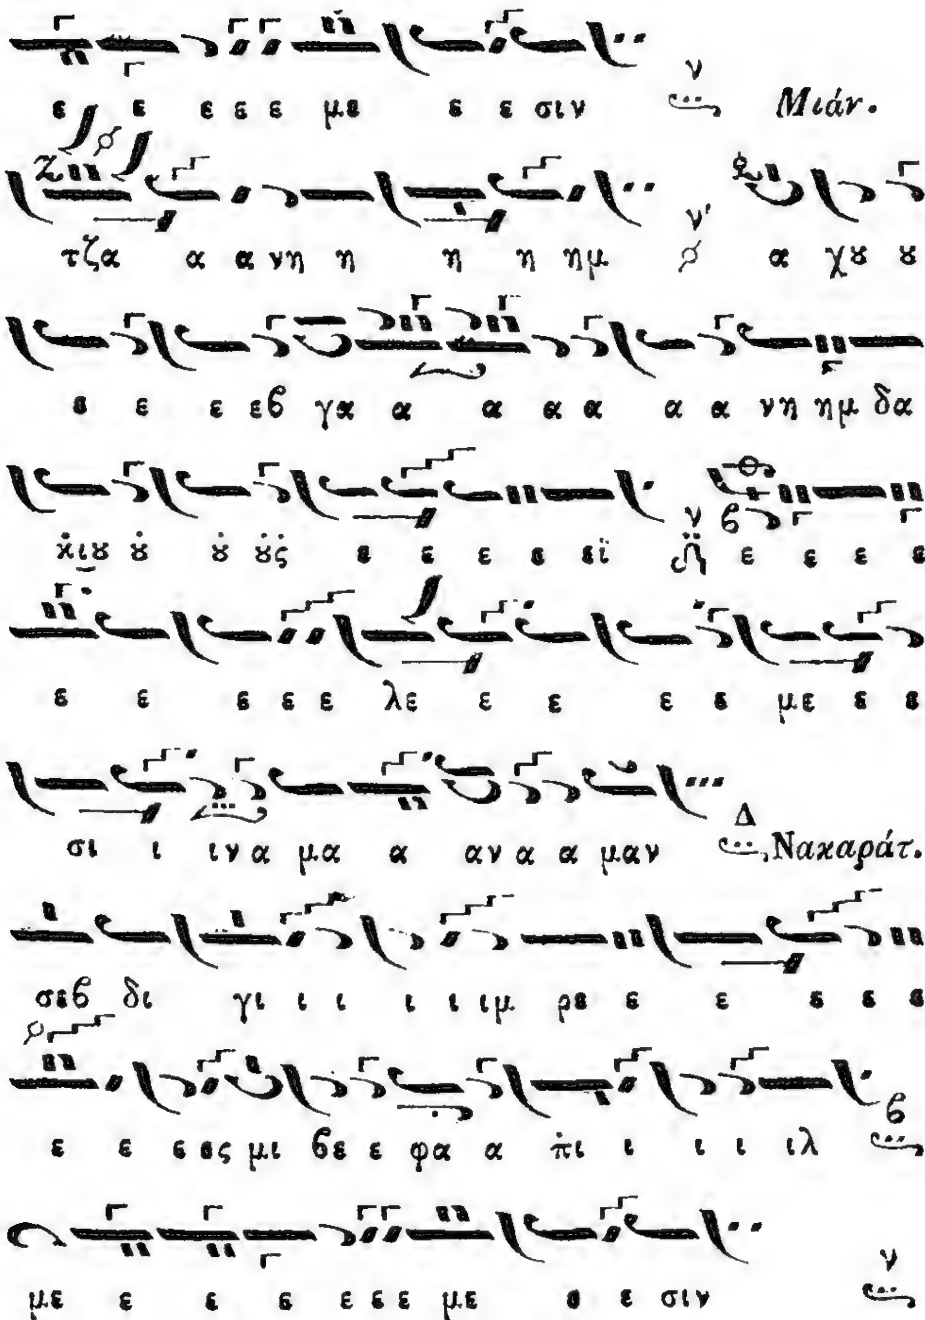 ε ε ε ε ε με ε ε σιν ν Μιάν.
τζα α α νη η η η ημ ν' α χȣ ȣ
ε ε ε εβ γα α α α α α α νη ημ δα
κ̇ιȣ ȣ̇ ȣ̇ ȣ̇ς ε ε ε ε εϊ ν ε ε ε ε
ε ε ε ε ε λε ε ε ε ε με ε ε
σι ι ιν α μα α αν α α μαν Δ Νακαράτ.
σεβ δι γι ι ι ι ι ιμ ρε ε ε ε ε ε
ε ε ε ες μι βε ε φα α π̇ι ι ι ι ιλ β
με ε ε ε ε ε ε με ε ε σιν ν